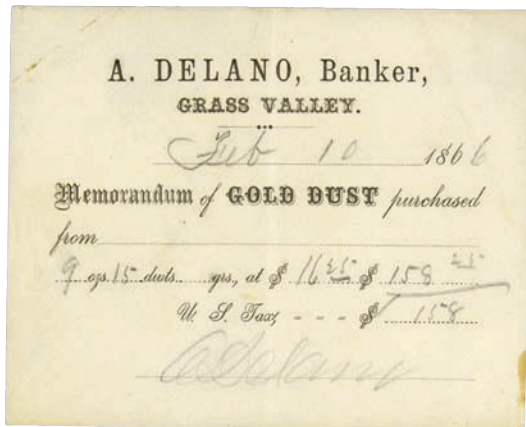 A. DELANO, Banker,
GRASS VALLEY.
Feb 10 1866
Memorandum of GOLD DUST purchased
from
9 ozs. 15 dwts. grs., at $ 16 25 $ 158
U. S. Tax, - - - $ 158
A Delano